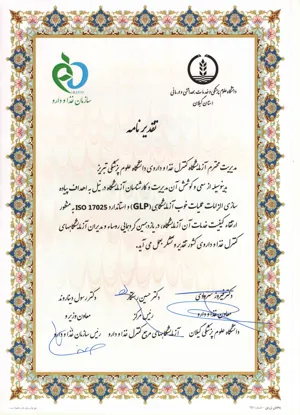 سازمان غذا و دارو
دانشگاه علوم پزشکی و خدمات بهداشتی و درمانی
استان گیلان
تقدیرنامه
مدیریت محترم آزمایشگاه کنترل غذا و داروی دانشگاه علوم پزشکی تبریز
بدینوسیله از سعی و کوشش آن مدیریت و کارشناسان آزمایشگاه در نیل به اهداف پیاده
سازی الزامات عملیات خوب آزمایشگاهی (GLP) و استاندارد ISO 17025 به منظور
ارتقاء کیفیت خدمات آن آزمایشگاه، در یازدهمین گردهمایی روسا و مدیران آزمایشگاههای
کنترل غذا و داروی کشور تقدیر و تشکر بعمل می آید.
دکتر حسین رستگار دکتر رسول دیناروند
معاون غذا و دارو رئیس مرکز معاون وزیر و
دانشگاه علوم پزشکی گیلان آزمایشگاههای مرجع کنترل غذا و دارو رئیس سازمان غذا و دارو